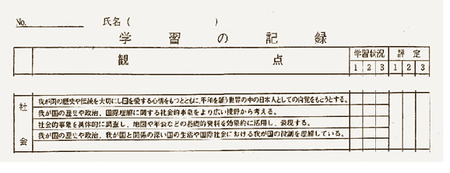 No. 氏名( )
学習の記録
観点 学習状況 評定
1 2 3 1 2 3
社会
我が国の歴史や伝統を大切にし国を愛する心情をもつとともに,平和を願う世界の中の日本人としての自覚をもとうとする。
我が国の歴史や政治,国際理解に関する社会的事象をより広い視野から考える。
社会的事象を具体的に調査し,地図や年表などの基礎的資料を効果的に活用し,表現する。
我が国の歴史や政治,我が国と関係の深い国の生活や国際社会における我が国の役割を理解している。